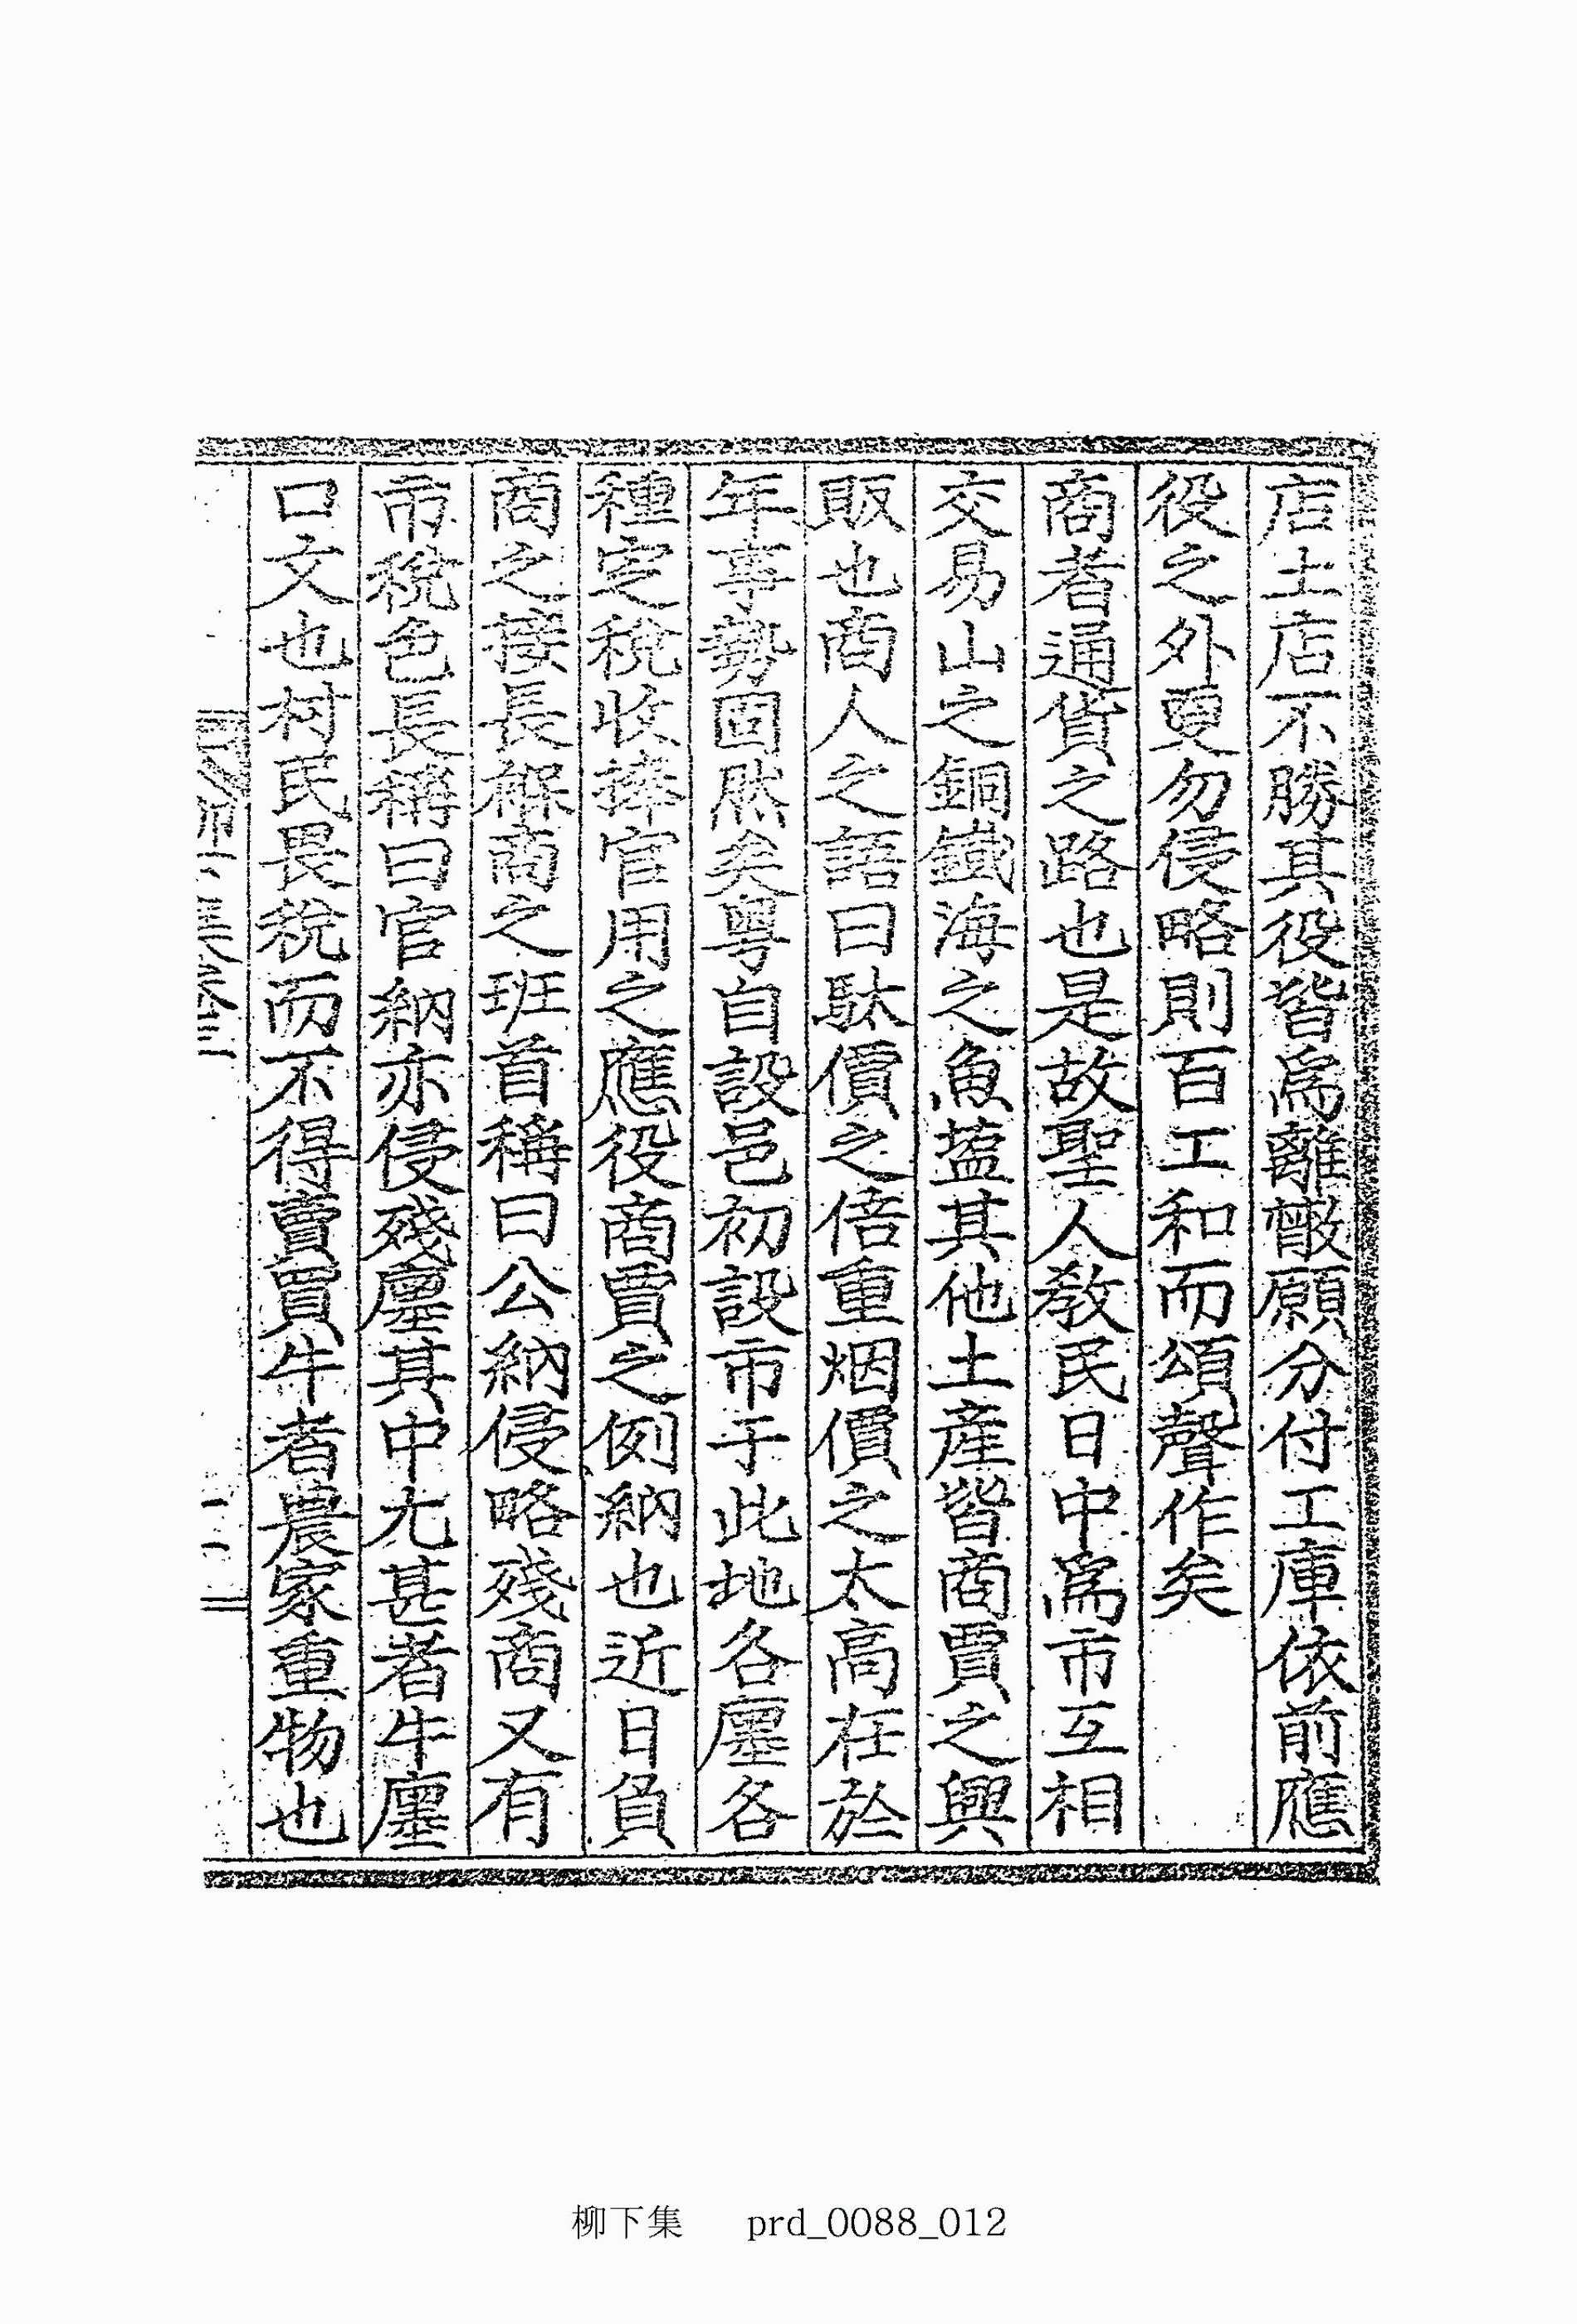 店土店不勝其役皆爲離散願分付工庫依前應
役之外更勿侵略則百工和而頌聲作矣
商者通貨之路也是故聖人敎民日中爲市互相
交易山之銅鐵海之魚䀋其他土產皆商賈之興
販也商人之語曰駄價之倍重烟價之太高在於
年事勢固然矣粤自設邑初設市于此地各廛各
種定稅收捧官用之應役商賈之例納也近日負
商之接長褓商之班首稱曰公納侵略殘商又有
市稅色長稱曰官納亦侵殘廛其中尤甚者牛廛
口文也村民畏稅而不得賣買牛者農家重物也
柳下集 prd_0088_012